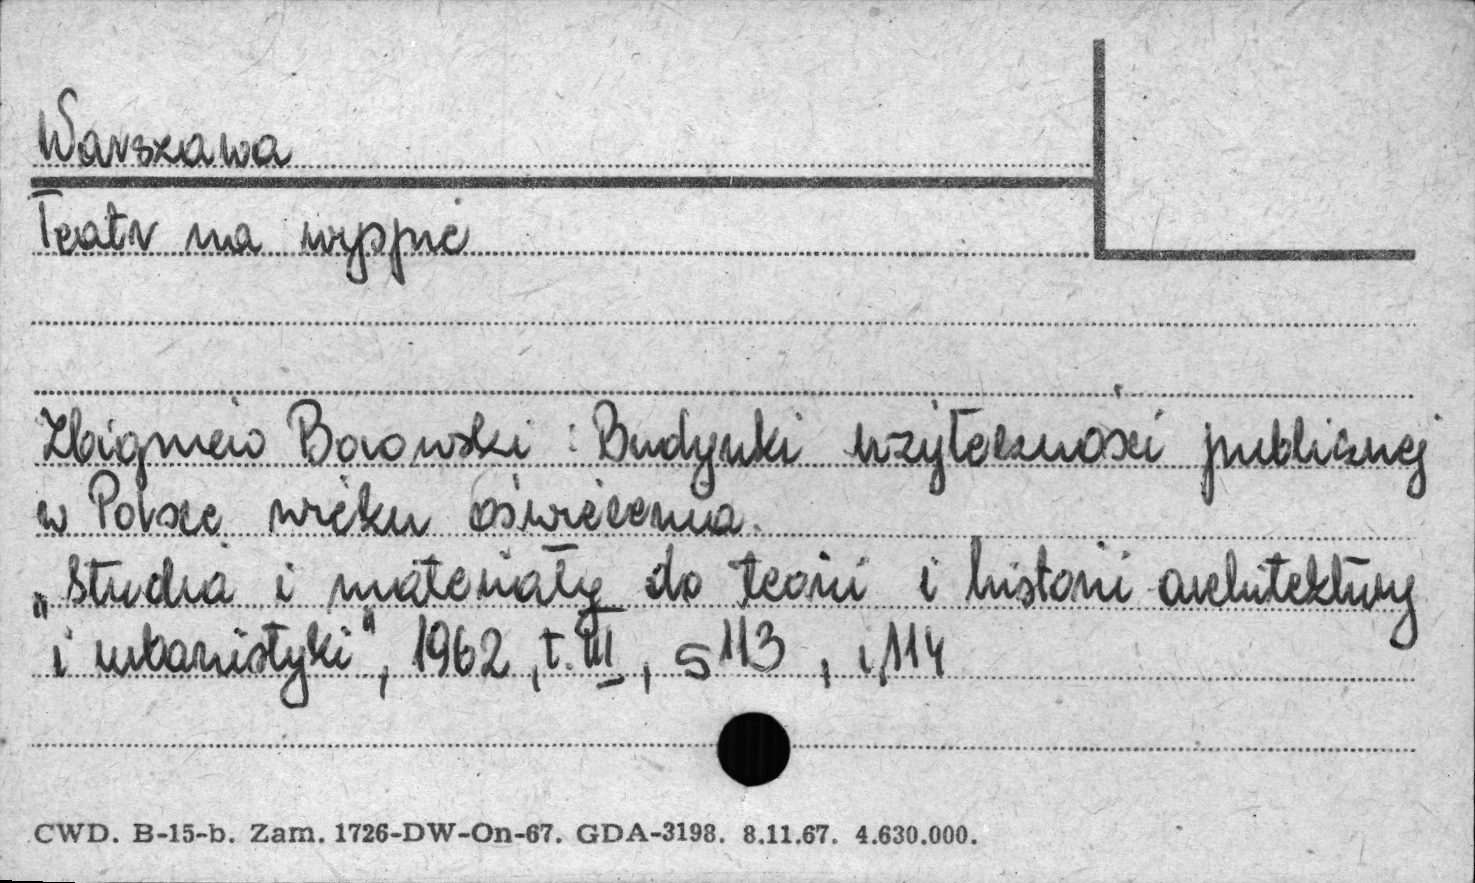 Warszawa
Teatr na wyspie
Zbigniew Borowski : Budynki użyteczności publicznej
w Polsce wieku oświecenia.
„Studia i materiały do teorii i historii architektury
i urbanistyki", 1962, t. III, s 113, i 114
CWD. B-15-b. Zam. 1726-DW-On-67. GDA-3198. 8.11.67. 4.630.000.